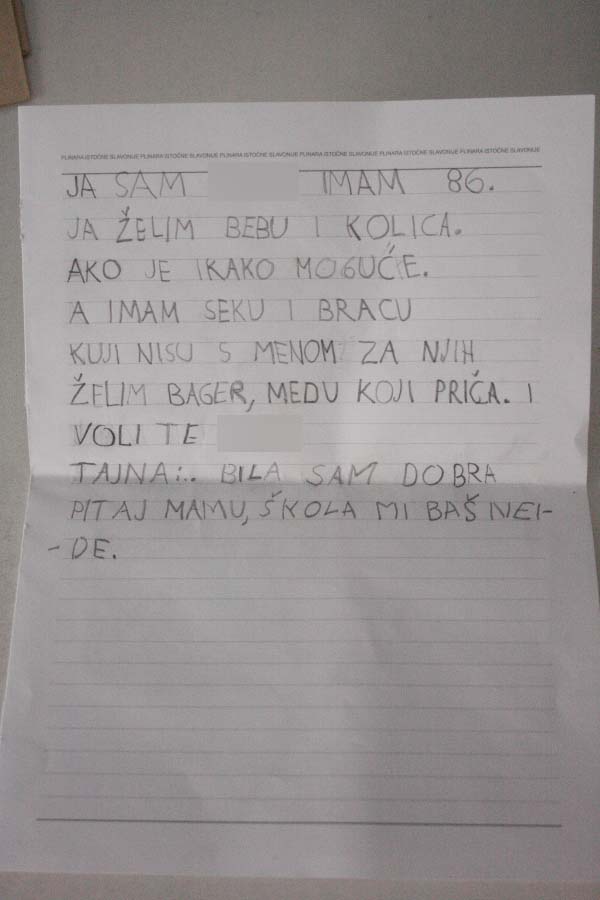 PLINARA ISTOČNE SLAVONIJE PLINARA ISTOČNE SLAVONIJE PLINARA ISTOČNE SLAVONIJE PLINARA ISTOČNE SLAVONIJE PLINARA ISTOČNE SLAVONIJE
JA SAM IMAM 86.
JA ŽELIM BEBU I KOLICA.
AKO JE IKAKO MOGUĆE.
A IMAM SEKU I BRACU
KUJI NISU S MENOM ZA NJIH
ŽELIM BAGER, MEDU KOJI PRIČA. I
VOLI TE
TAJNA:.. BILA SAM DOBRA
PITAJ MAMU, ŠKOLA MI BAŠ NEI-
-DE.